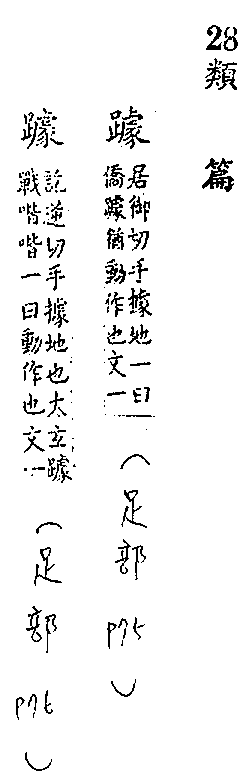 28
類篇
躆 居御切手據地一曰
僑躆猶動作也文一
(足部 p75)
躆 訖逆切手據地也太玄躆
戰喈喈一曰動作也文一
(足部 p76)